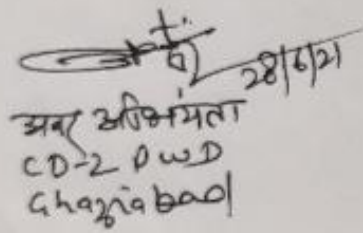 28/6/21
अवर अभियंता
CD-2 PWD
Ghaziabad